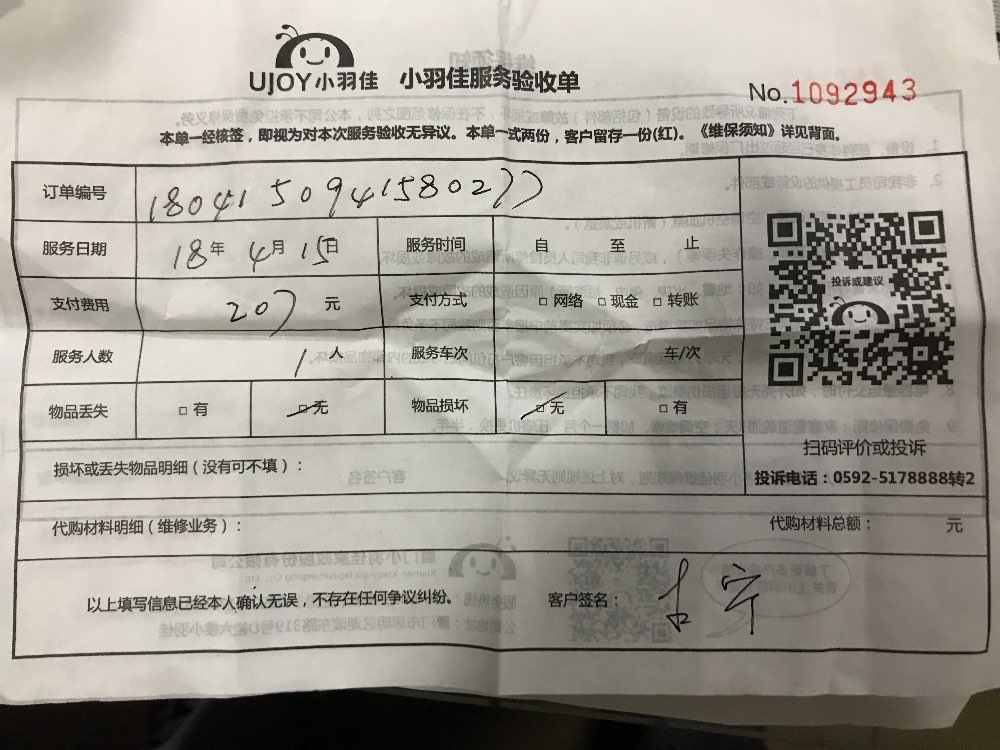 UJOY小羽佳 小羽佳服务验收单
No.1092943
本单一经核签，即视为对本次服务验收无异议。本单一式两份，客户留存一份(红)。《维保须知》详见背面。
订单编号 1804150941580277
服务日期 18年 4月 15日 服务时间 自 至 止
支付费用 207 元 支付方式 □网络 □现金 □转账
服务人数 1人 服务车次 车/次
物品丢失 □有 □无 物品损坏 □无 □有
投诉或建议
扫码评价或投诉
投诉电话：0592-5178888转2
损坏或丢失物品明细（没有可不填）：
代购材料明细（维修业务）： 代购材料总额： 元
以上填写信息已经本人确认无误，不存在任何争议纠纷。 客户签名：